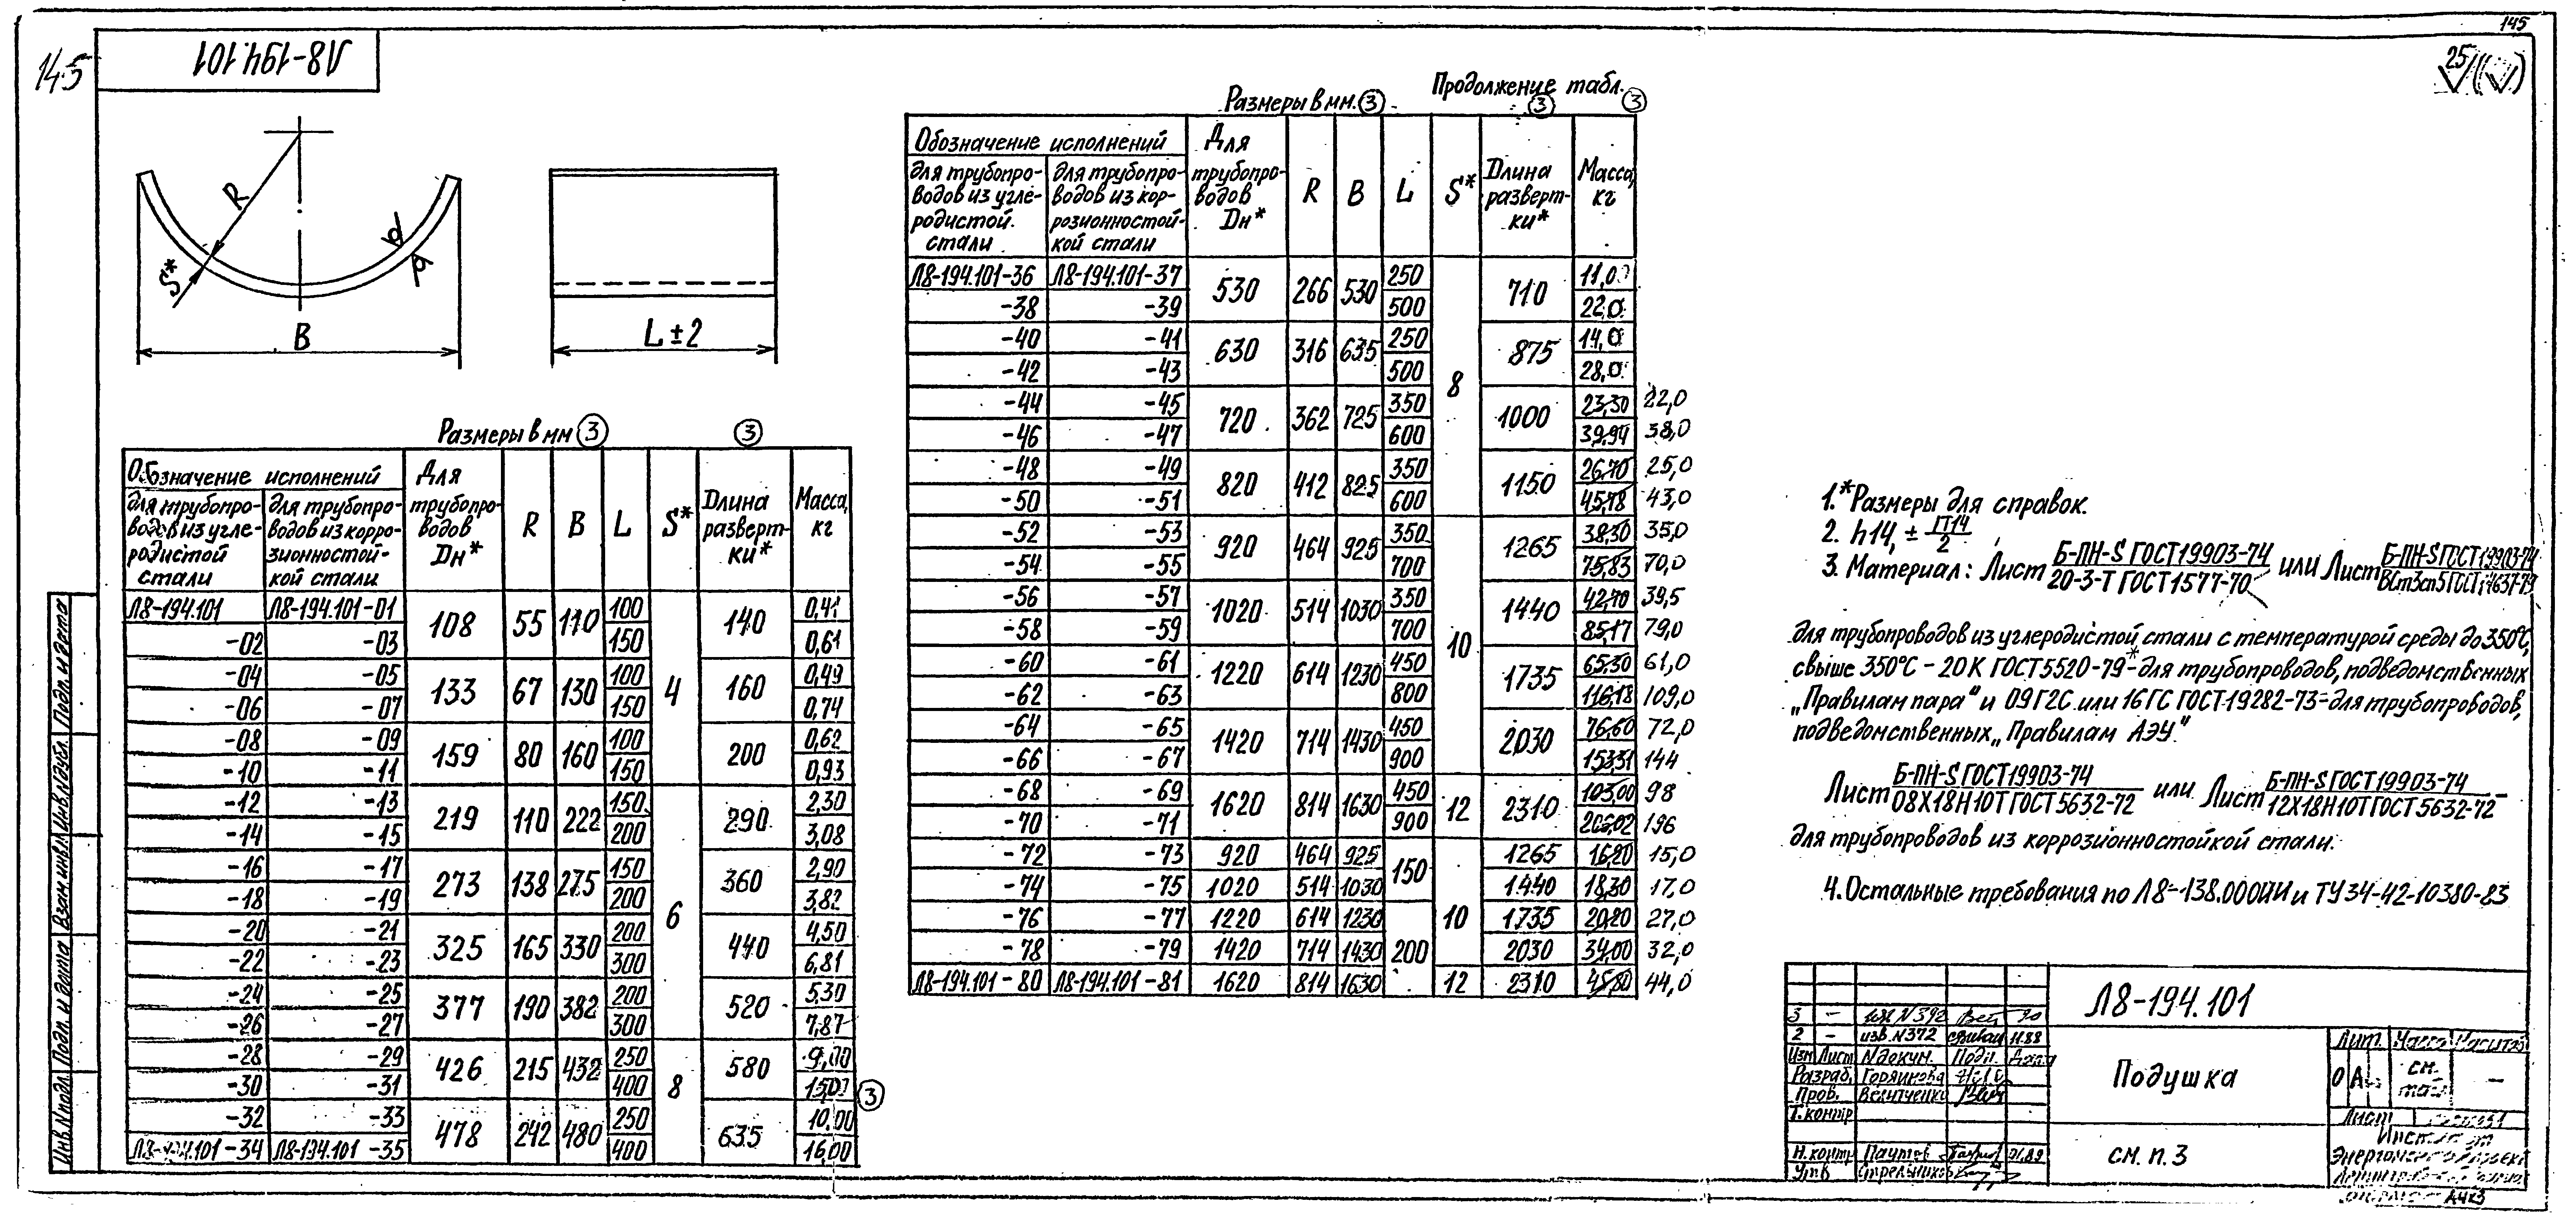 145
145
Л8-194.101
25
R
S*
B
L±2
Размеры в мм 3
3
Обозначение исполнений
для трубопроводов из углеродистой стали
для трубопроводов из коррозионностойкой стали
Для трубопроводов Dн*
R
B
L
S*
Длина развертки*
Масса, кг
Л8-194.101 Л8-194.101-01 108 55 110 100 4 140 0,41
-02 -03 150 0,61
-04 -05 133 67 130 100 160 0,49
-06 -07 150 0,74
-08 -09 159 80 160 100 200 0,62
-10 -11 150 0,93
-12 -13 219 110 222 150 6 290 2,30
-14 -15 200 3,08
-16 -17 273 138 275 150 360 2,90
-18 -19 200 3,82
-20 -21 325 165 330 200 440 4,50
-22 -23 300 6,81
-24 -25 377 190 382 200 520 5,30
-26 -27 300 7,87
-28 -29 426 215 432 250 8 580 9,00
-30 -31 400 15,00 3
-32 -33 478 242 480 250 635 10,00
Л8-194.101-34 Л8-194.101-35 400 16,00
Размеры в мм. 3
Продолжение табл.
3
3
Обозначение исполнений
для трубопроводов из углеродистой стали
для трубопроводов из коррозионностойкой стали
Для трубопроводов Dн*
R
B
L
S*
Длина развертки*
Масса, кг
Л8-194.101-36 Л8-194.101-37 530 266 530 250 8 710 11,0
-38 -39 500 22,0
-40 -41 630 316 635 250 875 14,0
-42 -43 500 28,0
-44 -45 720 362 725 350 1000 23,30 22,0
-46 -47 600 39,94 38,0
-48 -49 820 412 825 350 1150 26,70 25,0
-50 -51 600 45,78 43,0
-52 -53 920 464 925 350 10 1265 38,30 35,0
-54 -55 700 75,83 70,0
-56 -57 1020 514 1030 350 1440 42,70 39,5
-58 -59 700 85,17 79,0
-60 -61 1220 614 1230 450 1735 65,30 61,0
-62 -63 800 116,18 109,0
-64 -65 1420 714 1430 450 2030 76,60 72,0
-66 -67 900 153,31 144
-68 -69 1620 814 1630 450 12 2310 103,00 98
-70 -71 900 206,02 196
-72 -73 920 464 925 150 10 1265 16,20 15,0
-74 -75 1020 514 1030 1440 18,30 17,0
-76 -77 1220 614 1230 200 1735 29,20 27,0
-78 -79 1420 714 1430 2030 34,00 32,0
Л8-194.101-80 Л8-194.101-81 1620 814 1630 12 2310 45,80 44,0
1.*Размеры для справок.
2. h14, ± IT14/2
3. Материал: Лист Б-ПН-S ГОСТ19903-74/20-3-Т ГОСТ1577-70 или Лист Б-ПН-S ГОСТ19903-74/ВСт3сп5 ГОСТ14637-79
для трубопроводов из углеродистой стали с температурой среды до 350°С,
свыше 350°С - 20К ГОСТ5520-79*-для трубопроводов, подведомственных
„Правилам пара" и 09Г2С или 16ГС ГОСТ19282-73-для трубопроводов,
подведомственных „Правилам АЭУ."
Лист Б-ПН-S ГОСТ19903-74/08Х18Н10Т ГОСТ5632-72 или Лист Б-ПН-S ГОСТ19903-74/12Х18Н10Т ГОСТ5632-72 -
для трубопроводов из коррозионностойкой стали.
4. Остальные требования по Л8-138.000ИИ и ТУ34-42-10380-83
3 - N392 90
2 - изв.N372 11.88
Изм Лист N докум. Подп. Дата
Разраб. Горяинова
Пров. Велитченко
Т.контр
Н.контр Паутов
Утв Стрельников
Л8-194.101
Подушка
см. п. 3
Лит. Масса Масштаб
О А см. табл -
Лист
Институт
Энергомонтажпроект
А4х3
Инв.N подл. Подп. и дата Взам.инв.N Инв.N дубл. Подп. и дата